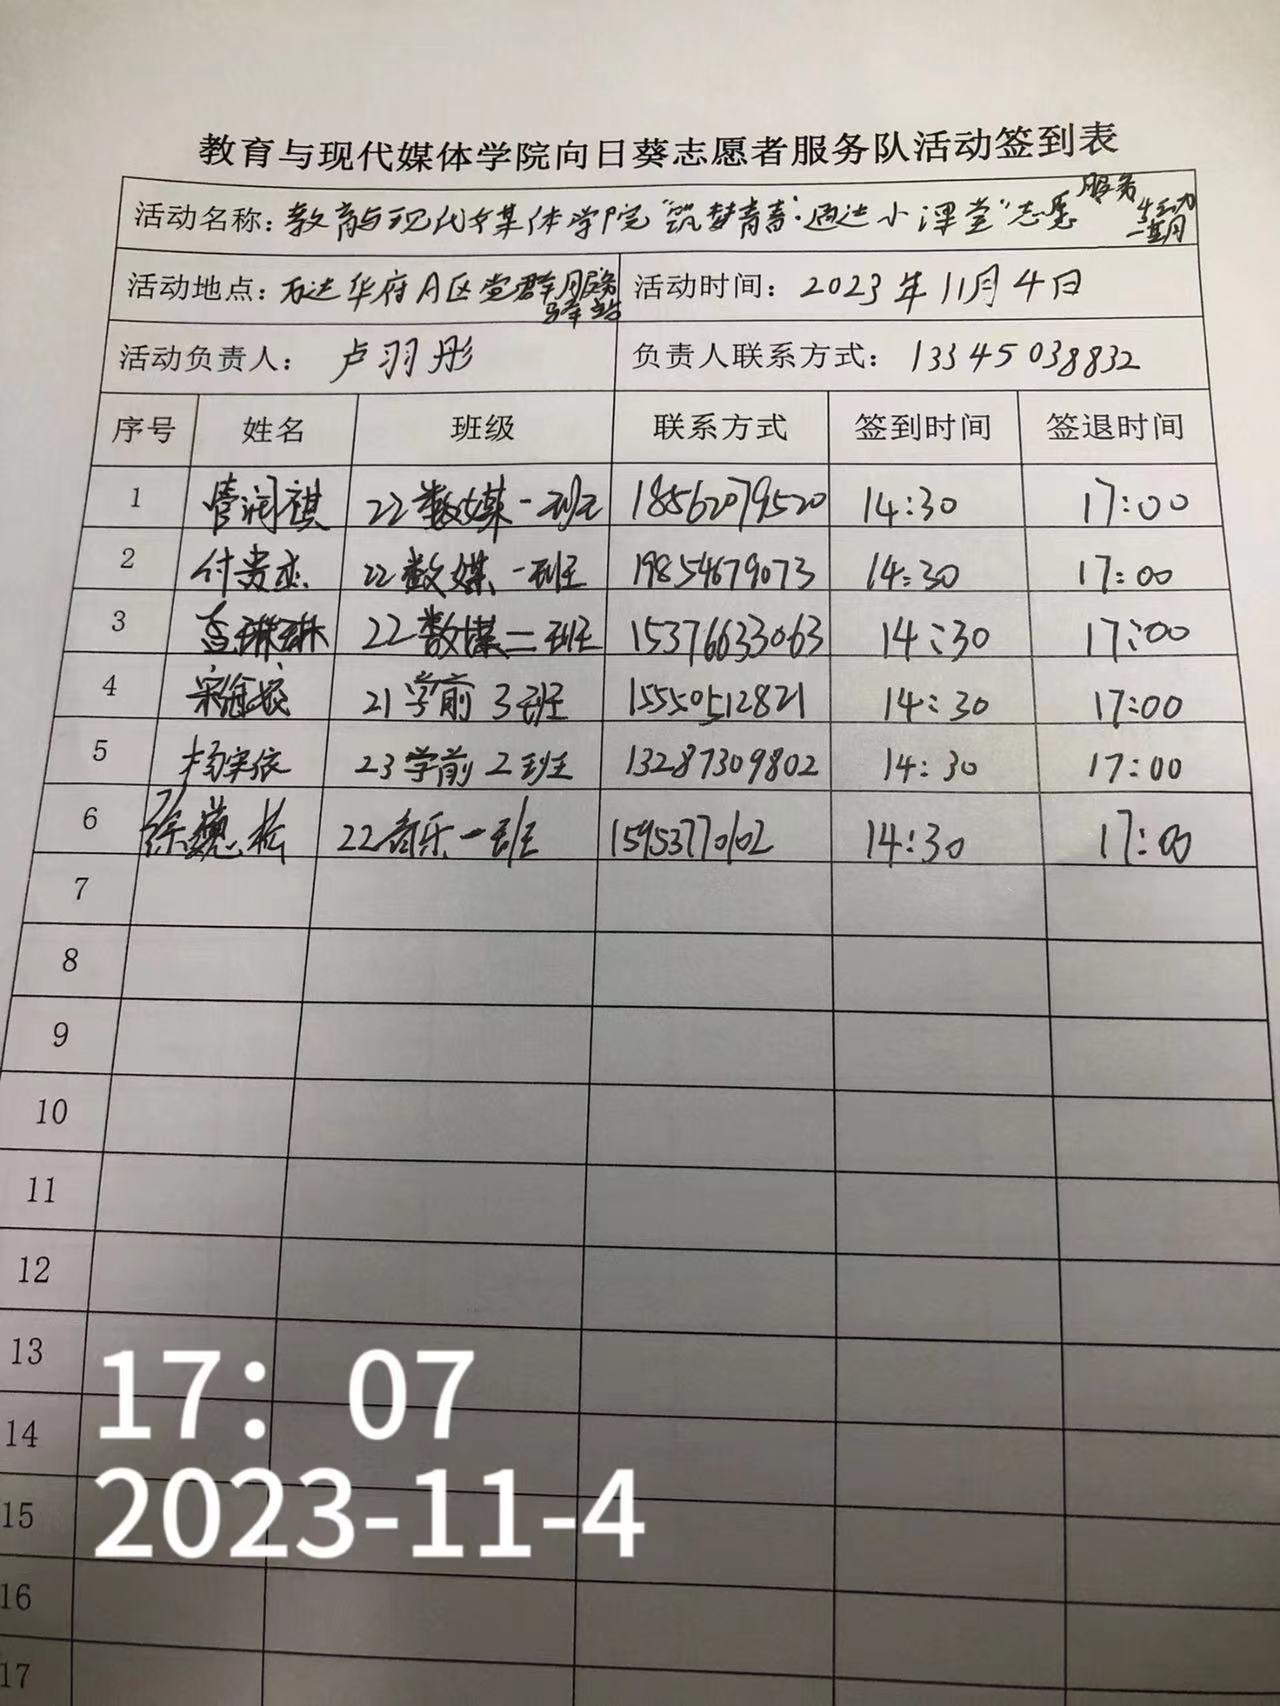 教育与现代媒体学院向日葵志愿者服务队活动签到表
活动名称：教育与现代媒体学院“筑梦青春·通达小课堂”志愿服务活动
活动地点：万达华府A区党群服务驿站 活动时间：2023年11月4日
活动负责人：卢羽彤 负责人联系方式：13345038832
序号 姓名 班级 联系方式 签到时间 签退时间
1 管润祺 22数媒一班 18562079520 14:30 17:00
2 付贵 22数媒一班 19854679073 14:30 17:00
3 琳琳 22数媒二班 15376633063 14:30 17:00
4 宋 21学前3班 15550512821 14:30 17:00
5 杨宋依 23学前2班 13287309802 14:30 17:00
6 徐巍松 22音乐一班 15953770102 14:30 17:00
7
8
9
10
11
12
13
14
15
16
17
17：07
2023-11-4